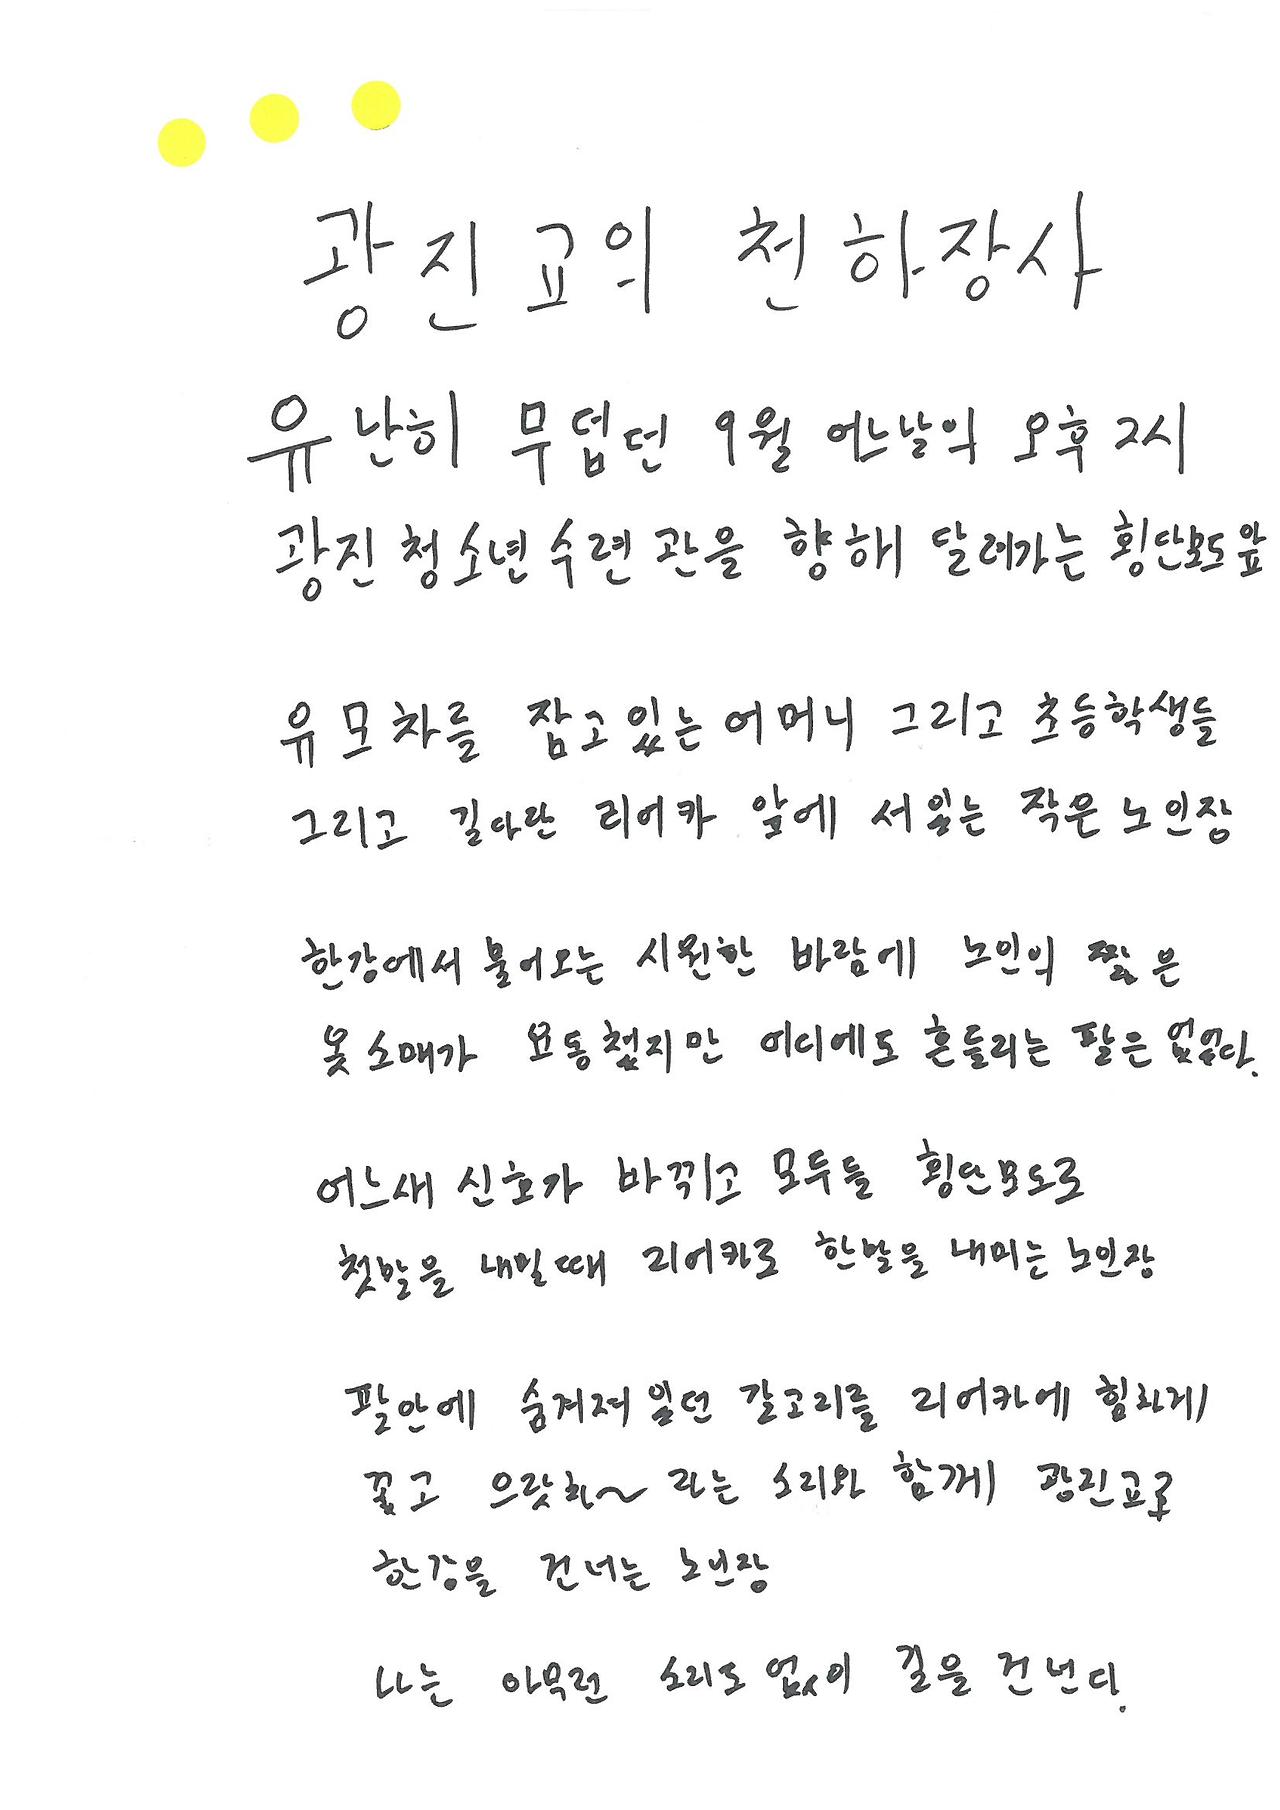 광진교의 천하장사
유난히 무덥던 9월 어느날의 오후 2시
광진청소년수련관을 향해 달려가는 횡단보도 앞
유모차를 잡고있는 어머니 그리고 초등학생들
그리고 길다란 리어카 앞에 서있는 작은 노인장
한강에서 불어오는 시원한 바람에 노인의 짧은
옷소매가 요동쳤지만 어디에도 흔들리는 팔은 없었다.
어느새 신호가 바뀌고 모두들 횡단보도로
첫발을 내밀때 리어카로 한발을 내미는 노인장
팔안에 숨겨져있던 갈고리를 리어카에 힘차게
꽂고 으랏차~ 라는 소리와 함께 광진교로
한강을 건너는 노인장
나는 아무런 소리도 없이 길을 건넌다.